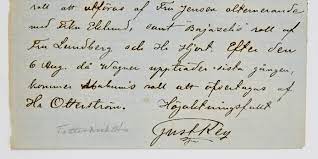 roll att utföras af Fru Jensen alternerande
med Fkn Eklund, samt "Bajazzos" roll af
Fru Lundberg och Hr Hjort. Efter den
6 Aug. då Wagner uppträder sista gången,
kommer roll att öfvertagas af
Hr Otterström. Högaktningsfullt
Gust Rey